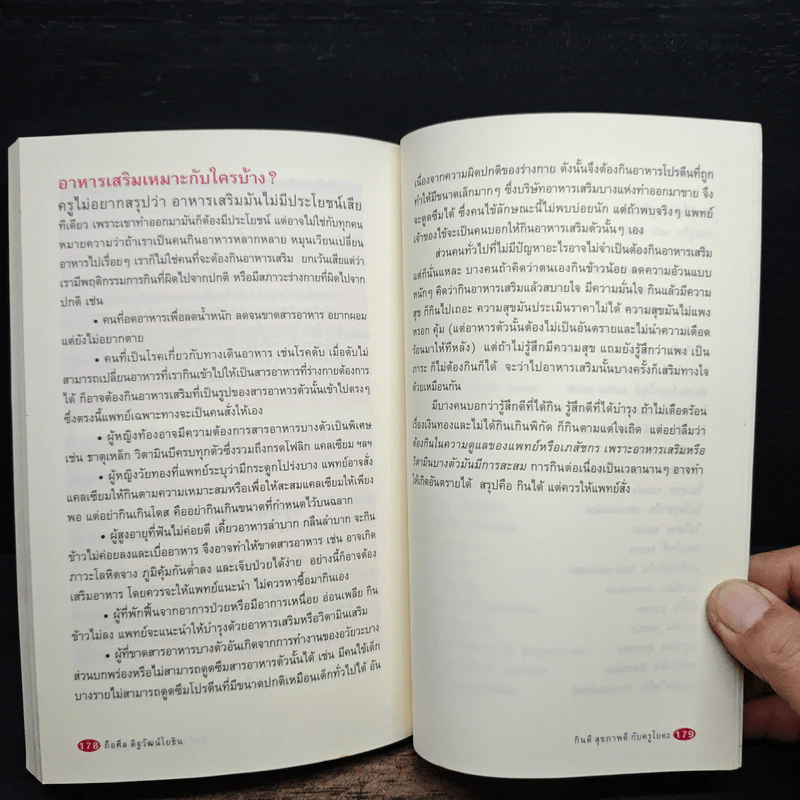 อาหารเสริมเหมาะกับใครบ้าง?
ครูไม่อยากสรุปว่า อาหารเสริมมันไม่มีประโยชน์เสีย
ทีเดียว เพราะเขาทำออกมามันก็ต้องมีประโยชน์ แต่อาจไม่ใช่กับทุกคน
หมายความว่าถ้าเราเป็นคนกินอาหารหลากหลาย หมุนเวียนเปลี่ยน
อาหารไปเรื่อยๆ เราก็ไม่ใช่คนที่จะต้องกินอาหารเสริม ยกเว้นเสียแต่ว่า
เรามีพฤติกรรมการกินที่ผิดไปจากปกติ หรือมีสภาวะร่างกายที่ผิดไปจาก
ปกติ เช่น
• คนที่อดอาหารเพื่อลดน้ำหนัก ลดจนขาดสารอาหาร อยากผอม
แต่ยังไม่อยากตาย
• คนที่เป็นโรคเกี่ยวกับทางเดินอาหาร เช่นโรคตับ เมื่อตับไม่
สามารถเปลี่ยนอาหารที่เรากินเข้าไปให้เป็นสารอาหารที่ร่างกายต้องการ
ได้ ก็อาจต้องกินอาหารเสริมที่เป็นรูปของสารอาหารตัวนั้นเข้าไปตรงๆ
ซึ่งตรงนี้แพทย์เฉพาะทางจะเป็นคนสั่งให้เอง
• ผู้หญิงท้องอาจมีความต้องการสารอาหารบางตัวเป็นพิเศษ
เช่น ธาตุเหล็ก วิตามินบีครบทุกตัวซึ่งรวมถึงกรดโฟลิก แคลเซียม ฯลฯ
• ผู้หญิงวัยทองที่แพทย์ระบุว่ามีกระดูกโปร่งบาง แพทย์อาจสั่ง
แคลเซียมให้กินตามความเหมาะสมหรือเพื่อให้สะสมแคลเซียมให้เพียง
พอ แต่อย่ากินเกินโดส คืออย่ากินเกินขนาดที่กำหนดไว้บนฉลาก
• ผู้สูงอายุที่ฟันไม่ค่อยดี เคี้ยวอาหารลำบาก กลืนลำบาก จะกิน
ข้าวไม่ค่อยลงและเบื่ออาหาร จึงอาจทำให้ขาดสารอาหาร เช่น อาจเกิด
ภาวะโลหิตจาง ภูมิคุ้มกันต่ำลง และเจ็บป่วยได้ง่าย อย่างนี้ก็อาจต้อง
เสริมอาหาร โดยควรจะให้แพทย์แนะนำ ไม่ควรหาซื้อมากินเอง
• ผู้ที่พักฟื้นจากอาการป่วยหรือมีอาการเหนื่อย อ่อนเพลีย กิน
ข้าวไม่ลง แพทย์จะแนะนำให้บำรุงด้วยอาหารเสริมหรือวิตามินเสริม
• ผู้ที่ขาดสารอาหารบางตัวอันเกิดจากการทำงานของอวัยวะบาง
ส่วนบกพร่องหรือไม่สามารถดูดซึมสารอาหารตัวนั้นได้ เช่น มีคนไข้เด็ก
บางรายไม่สามารถดูดซึมโปรตีนที่มีขนาดปกติเหมือนเด็กทั่วไปได้ อัน
178 ถือศีล ดิฐวัฒน์โยธิน
เนื่องจากความผิดปกติของร่างกาย ดังนั้นจึงต้องกินอาหารโปรตีนที่ถูก
ทำให้มีขนาดเล็กมากๆ ซึ่งบริษัทอาหารเสริมบางแห่งทำออกมาขาย จึง
จะดูดซึมได้ ซึ่งคนไข้ลักษณะนี้ไม่พบบ่อยนัก แต่ถ้าพบจริงๆ แพทย์
เจ้าของไข้จะเป็นคนบอกให้กินอาหารเสริมตัวนั้นๆ เอง
ส่วนคนทั่วไปที่ไม่มีปัญหาอะไรอาจไม่จำเป็นต้องกินอาหารเสริม
แต่ก็นั่นแหละ บางคนถ้าคิดว่าตนเองกินข้าวน้อย ลดความอ้วนแบบ
หนักๆ คิดว่ากินอาหารเสริมแล้วสบายใจ มีความมั่นใจ กินแล้วมีความ
สุข ก็กินไปเถอะ ความสุขมันประเมินราคาไม่ได้ ความสุขมันไม่แพง
หรอก คุ้ม (แต่อาหารตัวนั้นต้องไม่เป็นอันตรายและไม่นำความเดือด
ร้อนมาให้ทีหลัง) แต่ถ้าไม่รู้สึกมีความสุข แถมยังรู้สึกว่าแพง เป็น
ภาระ ก็ไม่ต้องกินก็ได้ จะว่าไปอาหารเสริมนั้นบางครั้งก็เสริมทางใจ
ด้วยเหมือนกัน
มีบางคนบอกว่ารู้สึกดีที่ได้กิน รู้สึกดีที่ได้บำรุง ถ้าไม่เดือดร้อน
เรื่องเงินทองและไม่ได้กินเกินพิกัด ก็กินตามแต่ใจเถิด แต่อย่าลืมว่า
ต้องกินในความดูแลของแพทย์หรือเภสัชกร เพราะอาหารเสริมหรือ
วิตามินบางตัวมันมีการสะสม การกินต่อเนื่องเป็นเวลานานๆ อาจทำ
ให้เกิดอันตรายได้ สรุปคือ กินได้ แต่ควรให้แพทย์สั่ง
กินดี สุขภาพดี กับครูโยคะ 179